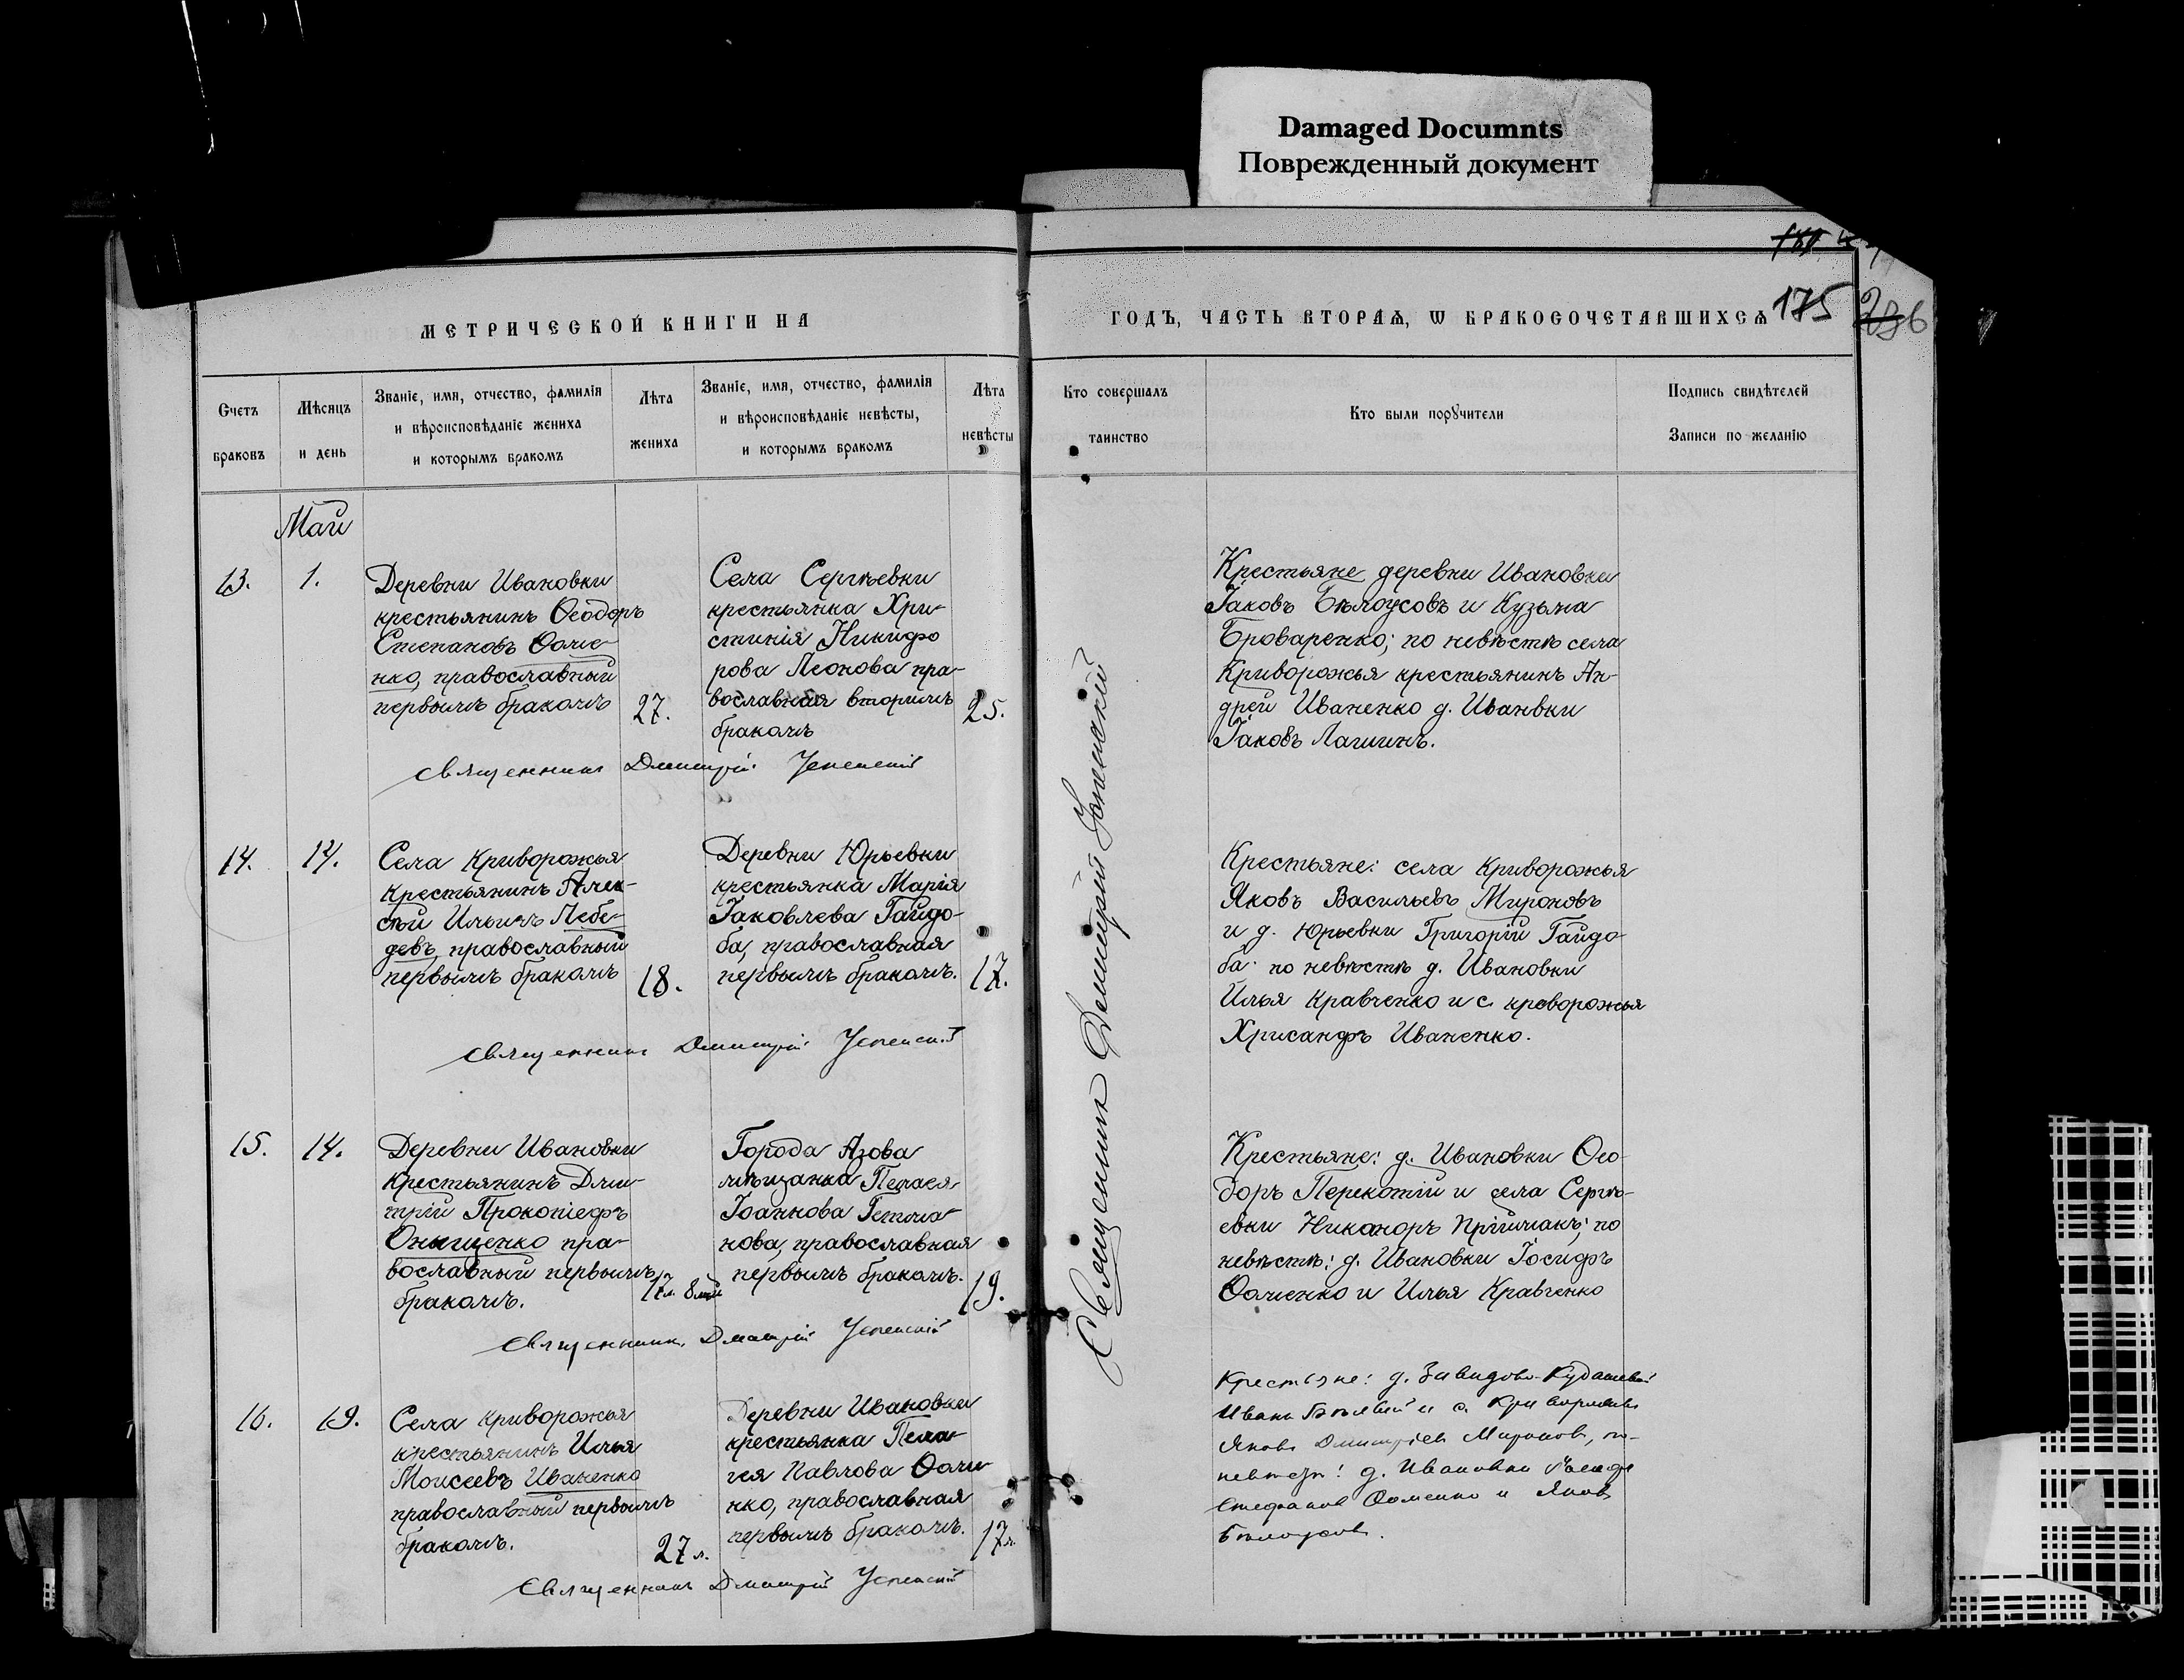 Damaged Documnts
Поврежденный документ
МЕТРИЧЕСКОЙ КНИГИ НА
ГОДЪ, ЧАСТЬ ВТОРАѦ, Ѡ БРАКОСОЧЕТАВШИХСѦ
175
Счетъ
браковъ
Мѣсяцъ
и день
Званіе, имя, отчество, фамилія
и вѣроисповѣданіе жениха
и которымъ бракомъ
Лѣта
жениха
Званіе, имя, отчество, фамилія
и вѣроисповѣданіе невѣсты,
и которымъ бракомъ
Лѣта
невѣсты
Кто совершалъ
таинство
Кто были порꙋчители
Подпись свидѣтелей
Записи по желанію
Май
13.
1.
Деревни Ивановки
крестьянинъ Ѳеодоръ
Степановъ Ѳоме-
нко, православный
первымъ бракомъ
27.
Села Сергѣевки
крестьянка Хри-
стинія Никифо
рова Леонова пра-
вославная вторымъ
бракомъ
25.
Священникъ Дмитрій Успенскій
Крестьяне деревни Ивановки
Іаковъ Бѣлоусовъ и Кузьма
Броваренко; по невѣстѣ села
Криворожья крестьянинъ Ан-
дрей Иваненко д. Ивановки
Іаковъ Лагшинъ.
Священникъ Димитрій Успенскій
14.
14.
Села Криворожья
крестьянинъ Алек-
сѣй Ильичъ Лебе-
девъ, православный
первымъ бракомъ
18.
Деревни Юрьевки
крестьянка Марія
Іаковлева Гайдо-
ба, православная
первымъ бракомъ.
17.
Священникъ Дмитрій Успенскій
Крестьяне: села Криворожья
Яковъ Васильевъ Мироновъ
и д. Юрьевки Григорій Гайдо-
ба; по невѣстѣ д. Ивановки
Илья Кравченко и с. криворожья
Хрисанфъ Иваненко.
15.
14.
Деревни Ивановки
крестьянинъ Дми-
трій Прокопіефъ
Онищенко пра-
вославный первымъ
бракомъ.
17 л. 8 м.
Города Азова
мѣщанка Пелагея
Іоаннова Гетма-
нова, православная
первымъ бракомъ.
19.
Священникъ Дмитрій Успенскій
Крестьяне: д. Ивановки Ѳео-
доръ Перекотій и села Сергѣ-
евки Никаноръ Пріймакъ; по
невѣстѣ: д. Ивановки Іосифъ
Ѳоменко и Илья Кравченко
16.
19.
Села Криворожья
крестьянинъ Илья
Моисеевъ Иваненко
православный первымъ
бракомъ.
27 л.
Деревни Ивановки
крестьянка Пела-
гея Павлова Ѳоме-
нко, православная
первымъ бракомъ.
17 л.
Священникъ Дмитрій Успенскій
Крестьяне: д. Завидово-Кудашевой
Иванъ и с. Криворожья
Яковъ Дмитріевъ Мироновъ, по-
невѣстѣ: д. Ивановки
Стефановъ Ѳоменко и Яковъ
Бѣлоусовъ.